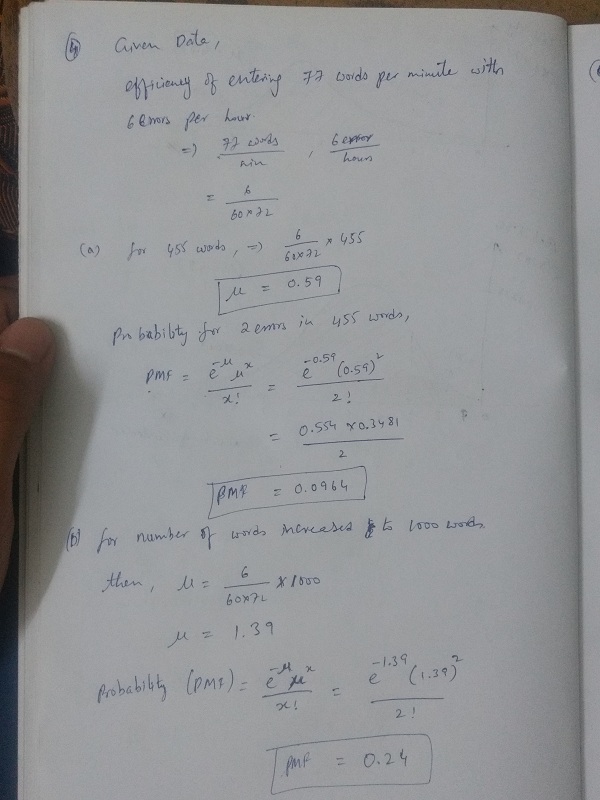 (4) Given Data,
efficiency of entering 77 words per minute with
6 Errors per hour.
=> 77 words / min , 6 error / hours
= 6 / 60×72
(a) for 455 words, => 6 / 60×72 × 455
μ = 0.59
Probability for 2 errors in 455 words,
PMF = e^-μ μ^x / x! = e^-0.59 (0.59)^2 / 2!
= 0.554 × 0.3481 / 2
PMF = 0.0964
(b) for number of words increases to 1000 words
then, μ = 6 / 60×72 × 1000
μ = 1.39
Probability (PMF) = e^-μ μ^x / x! = e^-1.39 (1.39)^2 / 2!
PMF = 0.24